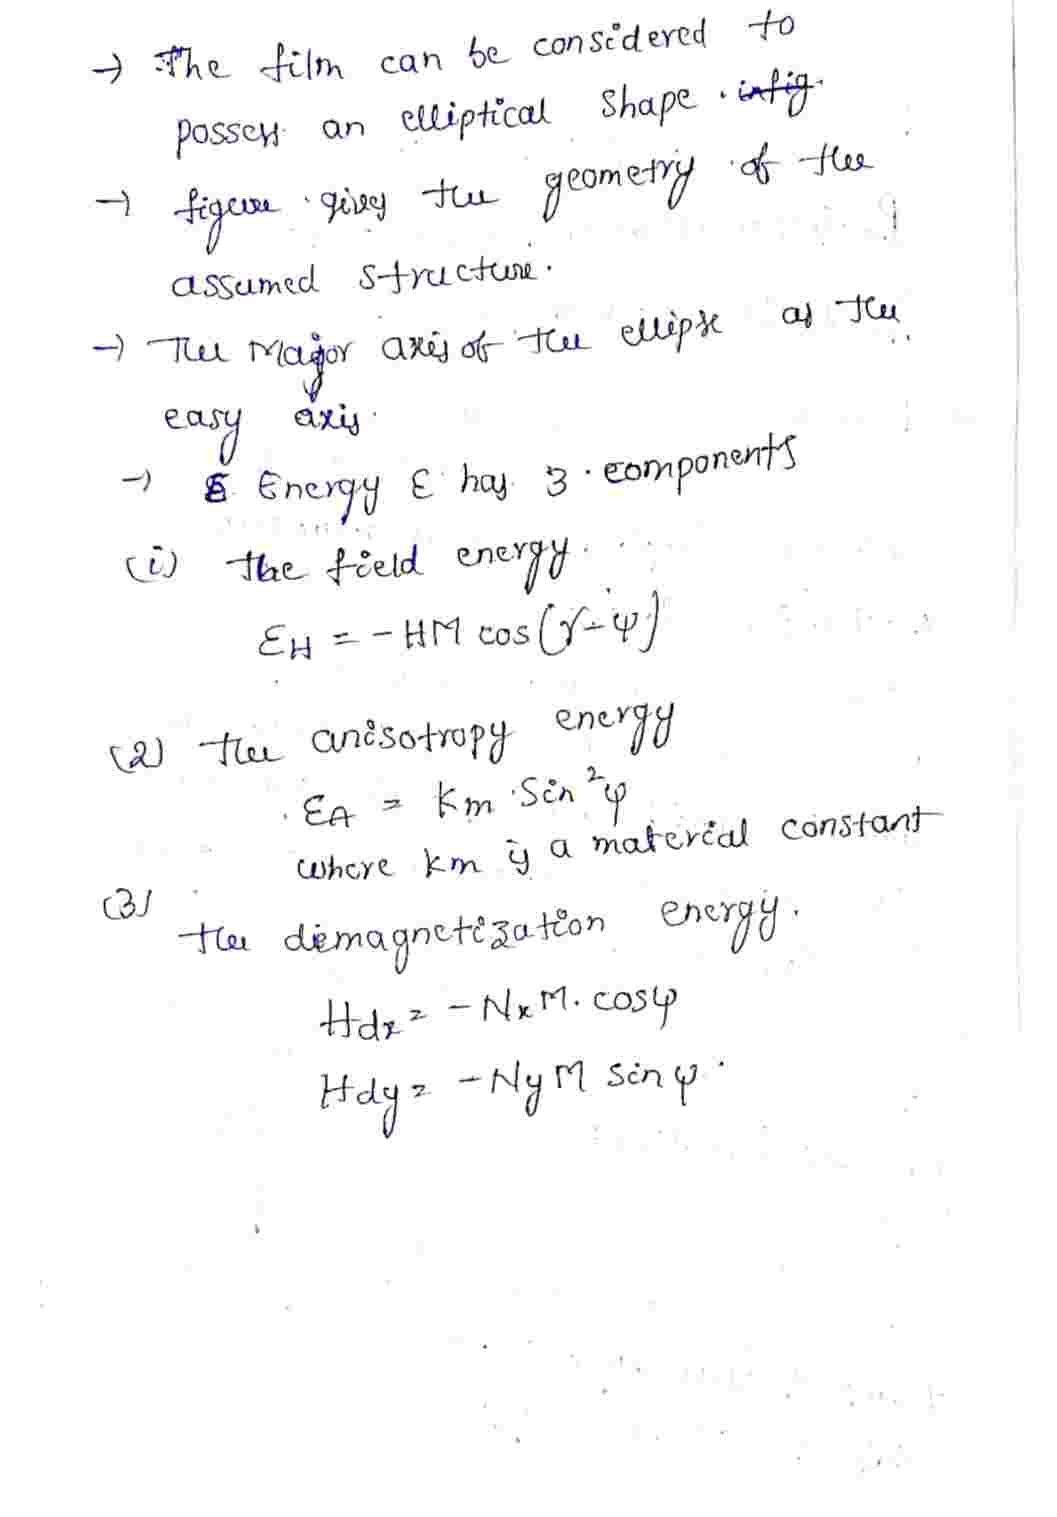 → The film can be considered to
possess an elliptical shape. infig.
→ figure gives the geometry of the
assumed structure.
→ The Major axis of the ellipse as the
easy axis.
→ E Energy E has 3 components
(i) the field energy.
EH = - HM cos(γ-φ)
(2) the anisotropy energy
EA = Km Sin²φ
where km is a material constant
(3)
the demagnetization energy.
Hdx = - NxM. cosφ
Hdy = - NyM sinφ.